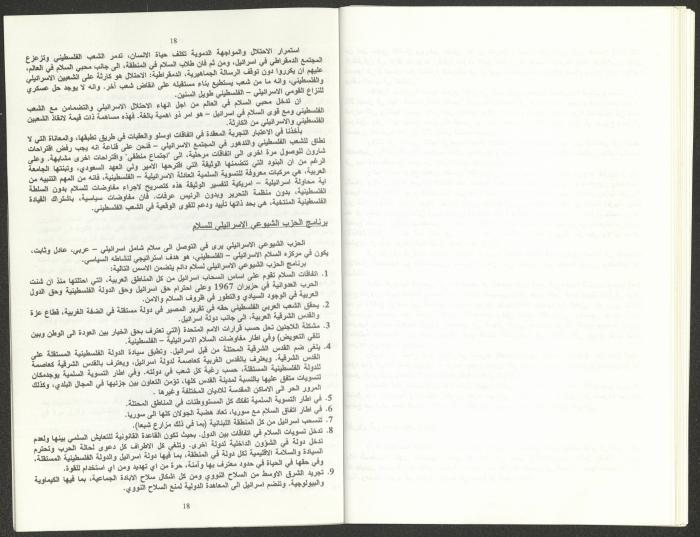 18
استمرار الاحتلال والمواجهة الدموية تكلف حياة الانسان، تدمر الشعب الفلسطيني وتزعزع
المجتمع الديمقراطي في اسرائيل، ومن ثم فان طلاب السلام في المنطقة، الى جانب محبي السلام في العالم،
عليهم ان يكرروا دون توقف الرسالة الجماهيرية، الديمقراطية: الاحتلال هو كارثة على الشعبين الاسرائيلي
والفلسطيني، وانه ما من شعب يستطيع بناء مستقبله على انقاض شعب آخر. وانه لا يوجد حل عسكري
للنزاع القومي الاسرائيلي – الفلسطيني طويل السنين.
ان تدخل محبي السلام في العالم من اجل انهاء الاحتلال الاسرائيلي والتضامن مع الشعب
الفلسطيني ومع قوى السلام في اسرائيل – هو امر ذو اهمية بالغة. فهذه مساهمة ذات قيمة لانقاذ الشعبين
الفلسطيني والاسرائيلي من الكارثة.
بأخذنا في الاعتبار التجربة المعقدة في اتفاقات اوسلو والعقبات في طريق تطبيقها، والمعاناة التي لا
تطاق للشعب الفلسطيني والتدهور في المجتمع الاسرائيلي – فنحن على قناعة انه يجب رفض اقتراحات
شارون للوصول مرة اخرى الى اتفاقات مرحلية، الى "اجتماع مناطقي" واقتراحات اخرى مشابهة. وعلى
الرغم من ان البنود التي تتضمنها الوثيقة التي اقترحها الامير ولي العهد السعودي، وتبنتها الجامعة
العربية، هي مركبات معروفة للتسوية السلمية العادلة الاسرائيلية – الفلسطينية، فانه من المهم التنبيه من
اية محاولة اسرائيلية – امريكية لتفسير الوثيقة هذه كتصريح لاجراء مفاوضات للسلام بدون السلطة
الفلسطينية، بدون منظمة التحرير وبدون الرئيس عرفات. فان مفاوضات سياسية، باشتراك القيادة
الفلسطينية المنتخبة، هي بحد ذاتها تأييد ودعم للقوى الواقعية في الشعب الفلسطيني.
برنامج الحزب الشيوعي الاسرائيلي للسلام
الحزب الشيوعي الاسرائيلي يرى في التوصل الى سلام شامل اسرائيلي – عربي، عادل وثابت،
يكون في مركزه السلام الاسرائيلي – الفلسطيني، هو هدف استراتيجي لنشاطه السياسي.
برنامج الحزب الشيوعي الاسرائيلي لسلام دائم يتضمن الاسس التالية:
1. اتفاقات السلام تقوم على اساس انسحاب اسرائيل من كل المناطق العربية، التي احتلتها منذ ان شنت
الحرب العدوانية في حزيران 1967 وعلى احترام حق اسرائيل وحق الدولة الفلسطينية وحق الدول
العربية في الوجود السيادي والتطور في ظروف السلام والامن.
2. يحقق الشعب العربي الفلسطيني حقه في تقرير المصير في دولة مستقلة في الضفة الغربية، قطاع غزة
والقدس الشرقية العربية، الى جانب دولة اسرائيل.
3. مشكلة اللاجئين تحل حسب قرارات الامم المتحدة (التي تعترف بحق الخيار بين العودة الى الوطن وبين
تلقي التعويض) وفي اطار مفاوضات السلام الاسرائيلية – الفلسطينية.
4. يلغى ضم القدس الشرقية المحتلة من قبل اسرائيل. وتطبق سيادة الدولة الفلسطينية المستقلة على
القدس الشرقية. ويعترف بالقدس الغربية كعاصمة لدولة اسرائيل، ويعترف بالقدس الشرقية كعاصمة
للدولة الفلسطينية المستقلة. حسب رغبة كل شعب في دولته. وفي اطار التسوية السلمية يوجدمكان
لتسويات متفق عليها بالنسبة لمدينة القدس كلها، تؤمن التعاون بين جزئيها في المجال البلدي، وكذلك
المرور الحر الى الاماكن المقدسة للاديان المختلفة وغيرها .
5. في اطار التسوية السلمية تفكك كل المستوطنات في المناطق المحتلة.
6. في اطار اتفاق السلام مع سوريا، تعاد هضبة الجولان كلها الى سوريا.
7. تنسحب اسرائيل من كل المنطقة اللبنانية (بما في ذلك مزارع شبعا).
8. تدخل تسويات السلام في اتفاقات بين الدول. بحيث تكون القاعدة القانونية للتعايش السلمي بينها ولعدم
تدخل دولة في الشؤون الداخلية لدولة اخرى. وتلغي كل الاطراف كل دعوى لحالة الحرب وتحترم
السيادة والسلامة الاقليمية لكل دولة في المنطقة، بما فيها دولة اسرائيل والدولة الفلسطينية المستقلة،
وفي حقها في الحياة في حدود معترف بها وآمنة، حرة من اي تهديد ومن اي استخدام للقوة.
9. تجريد الشرق الاوسط من السلاح النووي ومن كل اشكال سلاح الابادة الجماعية، بما فيها الكيماوية
والبيولوجية. وتنضم اسرائيل الى المعاهدة الدولية لمنع السلاح النووي.
18